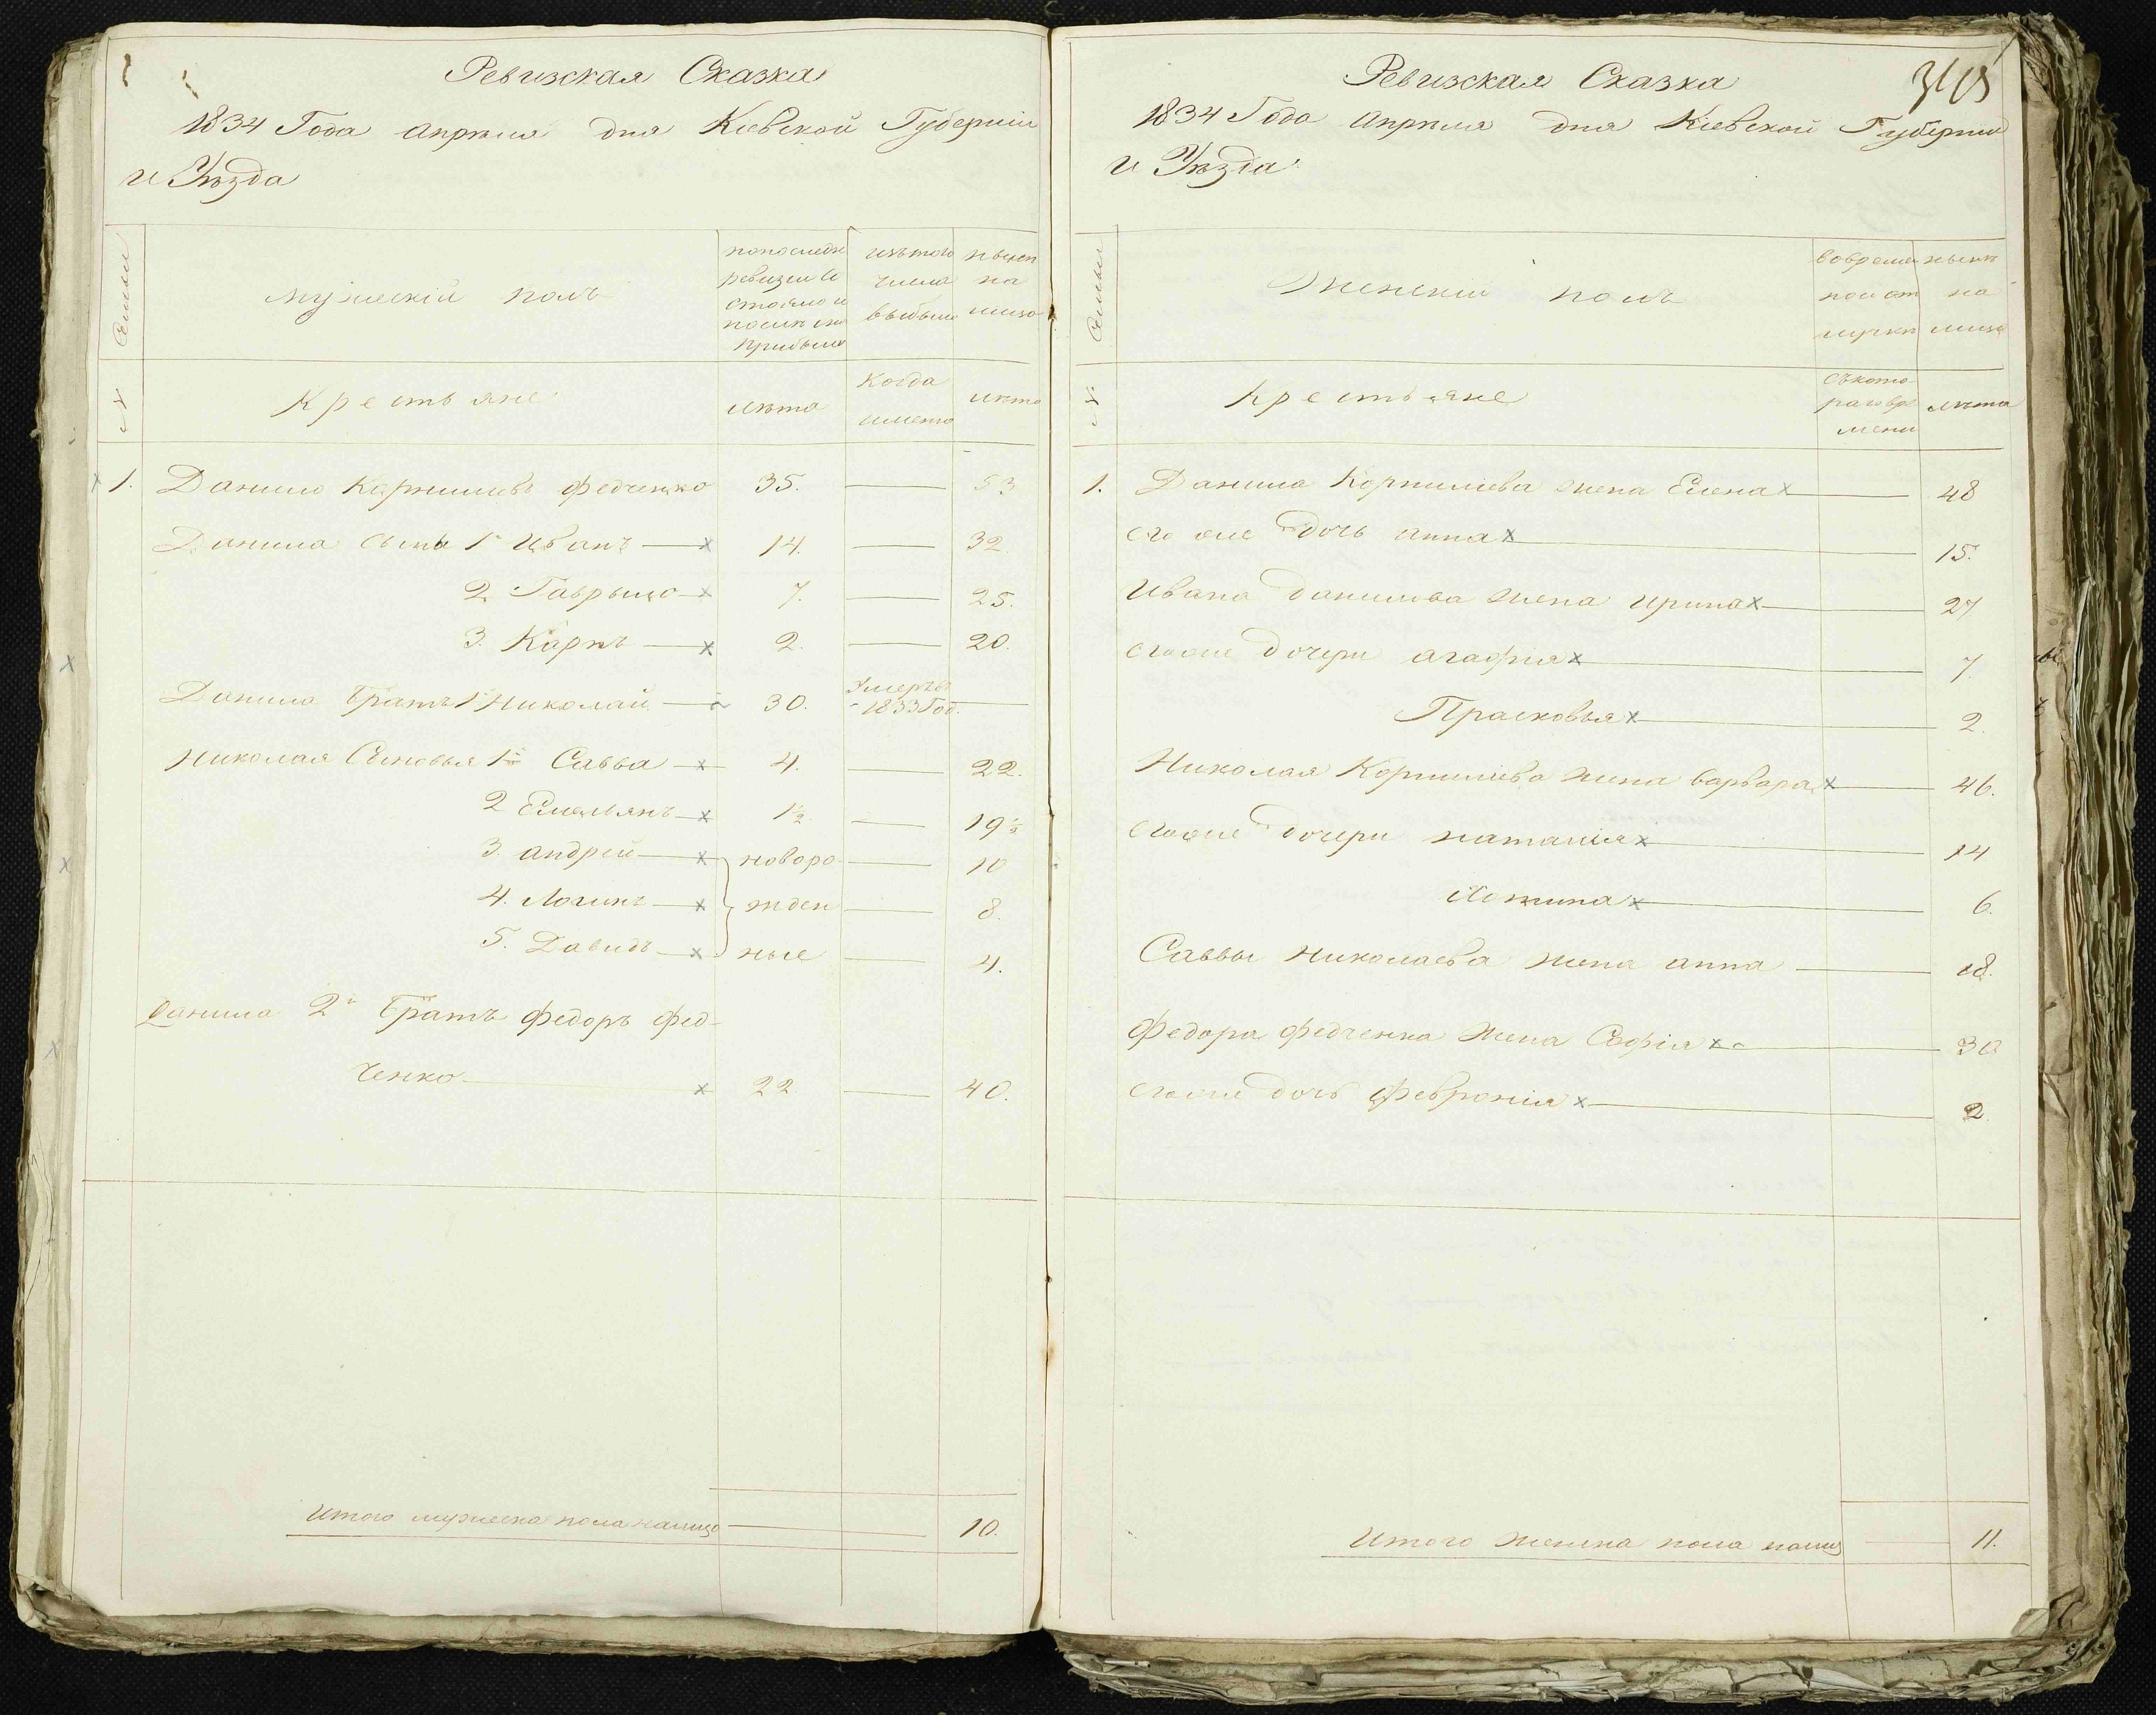 Ревизская Сказка
1834 Года Апреля дня Кіевской Губерніи
и Уѣзда
Семьи
мужескій полъ
по последн
ревизіи
состояло и
после ея
прибыло
изъ того
числа
выбыло
нынѣ
на
лицо
№
Крестьяне
лѣта
Когда
имено
лѣта
1. Данило Карнилиевъ Федченко 35. 53
Данила сынъ 1й Иванъ 14. 32.
2 Гаврыло 7. 25.
3. Карпъ 2. 20.
Данила Братъ 1й Николай 30. Умеръ въ 1833 Год.
Николая Сыновья 1й Савва 4. 22.
2 Емельянъ 1½ 19½
3. Андрей новоро 10
4. Логинъ жден 8.
5. Давидъ ные 4.
Данила 2й Братъ Федоръ Фед-
ченко 22 40.
Итого мужеска пола налицо 10.
Ревизская Сказка
1834 Года Апреля дня Кіевской Губерніи
и Уѣзда
Семьи
Женскій полъ
во времен
ной от
лучкѣ
нынѣ
на
лицо
№
Крестьяне
съ кото
раго вре
мени
лѣта
1. Данила Корнилиева жена Елена 48
его же дочь Анна 15.
Ивана Данилова жена Ирина 27
его же дочери Агафия 7.
Прасковья 2.
Николая Корнилиева жена Варвара 46.
его же дочери Наталія 14
6.
Саввы Николаева жена Анна 18.
Федора Федченка жена Софія 30
его же дочь Февронія 2.
Итого женска пола налиц 11.